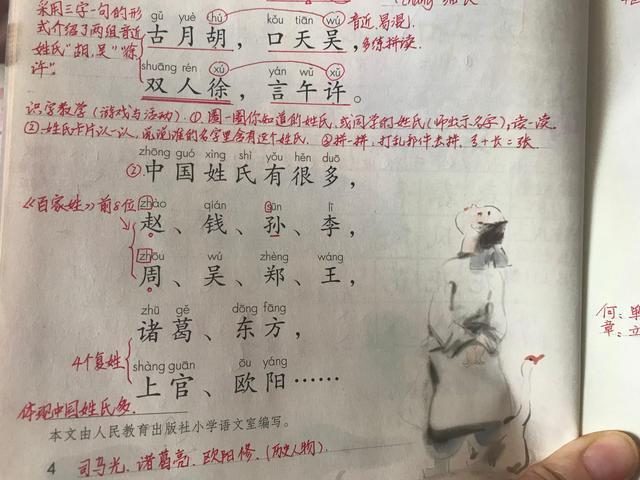 采用三字一句的形
式介绍了两组音近
姓氏"胡、吴""徐、
许"。
gǔ yuè hú kǒu tiān wú
古月胡，口天吴，
音近，易混。
多练拼读。
shuāng rén xú yán wǔ xǔ
双人徐，言午许。
识字教学（游戏与活动）①圈一圈你知道的姓氏，或同学的姓氏（师出示名字），读一读。
②姓氏卡片认一认，说说谁的名字里含有这个姓氏。③拼一拼，打乱部件去拼，弓+长=张
zhōng guó xìng shì yǒu hěn duō
②中国姓氏有很多，
《百家姓》前8位
zhào qián sūn lǐ
赵、钱、孙、李，
zhōu wú zhèng wáng
周、吴、郑、王，
zhū gě dōng fāng
诸葛、东方，
4个复姓
shàng guān ōu yáng
上官、欧阳……
体现中国姓氏多。
本文由人民教育出版社小学语文室编写。
4 司马光、诸葛亮、欧阳修（历史人物）
何：单
章：立